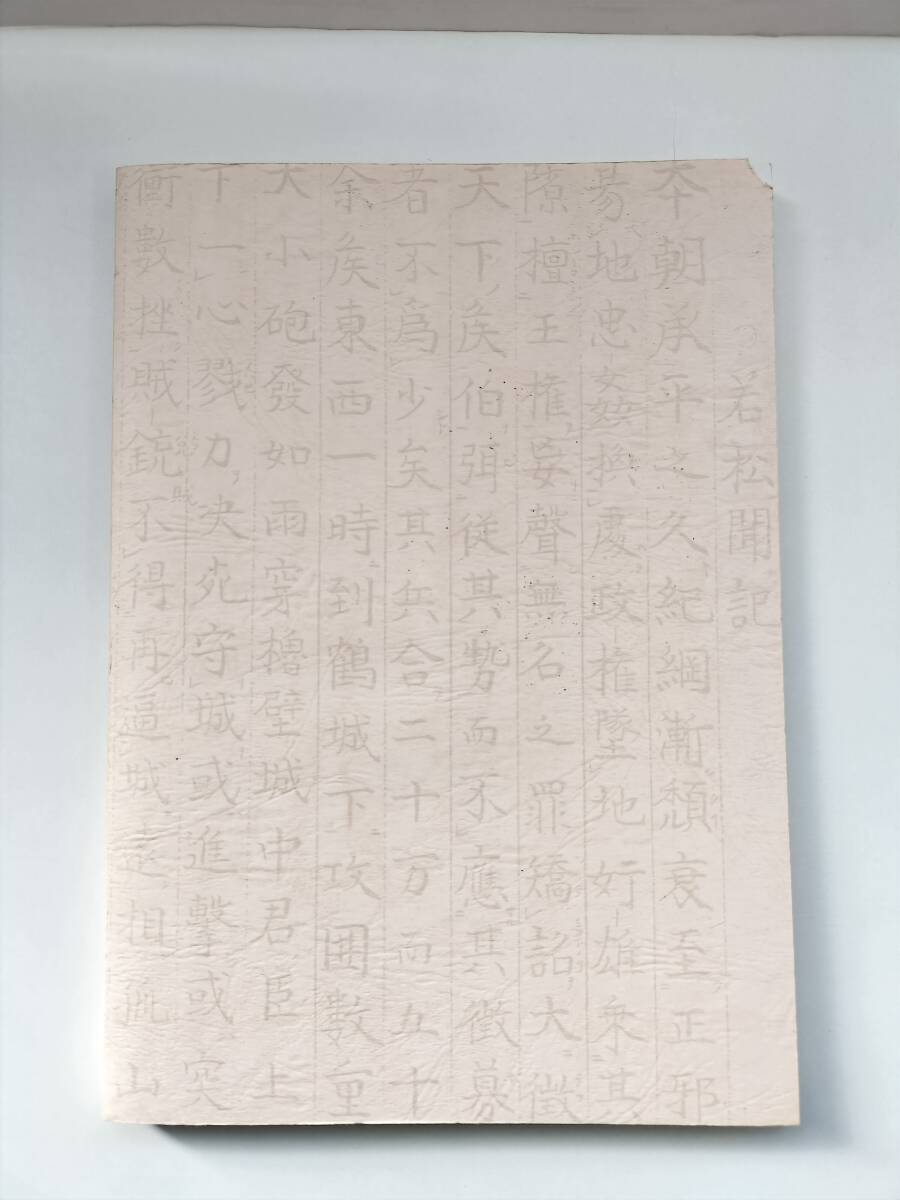 若松聞記
本朝承平之久紀綱漸頽衰至正邪
易地忠奸換處政権墜地奸雄乗其
隙擅王権妄聲無名之罪矯詔大徴
天下侯伯弭従其勢而不應其徴募
者不爲少矣其兵合二十万而五十
余侯東西一時到鶴城下攻囲數重
大小砲發如雨穿櫓壁城中君臣上
下一心戮力決死守城或進撃或突
衝數挫賊鋭不得再逼城遠相山